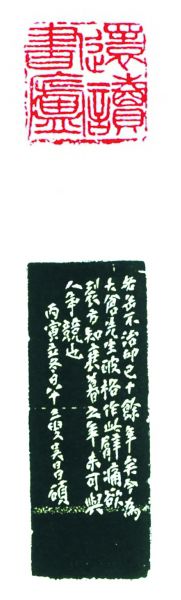 還讀
書廬
老缶不治印已十餘年矣今為
大倉先生破格作此臂痛欲
裂方知衰暮之年未可與
人爭競也
丙寅 冬 八十三叟吳昌碩